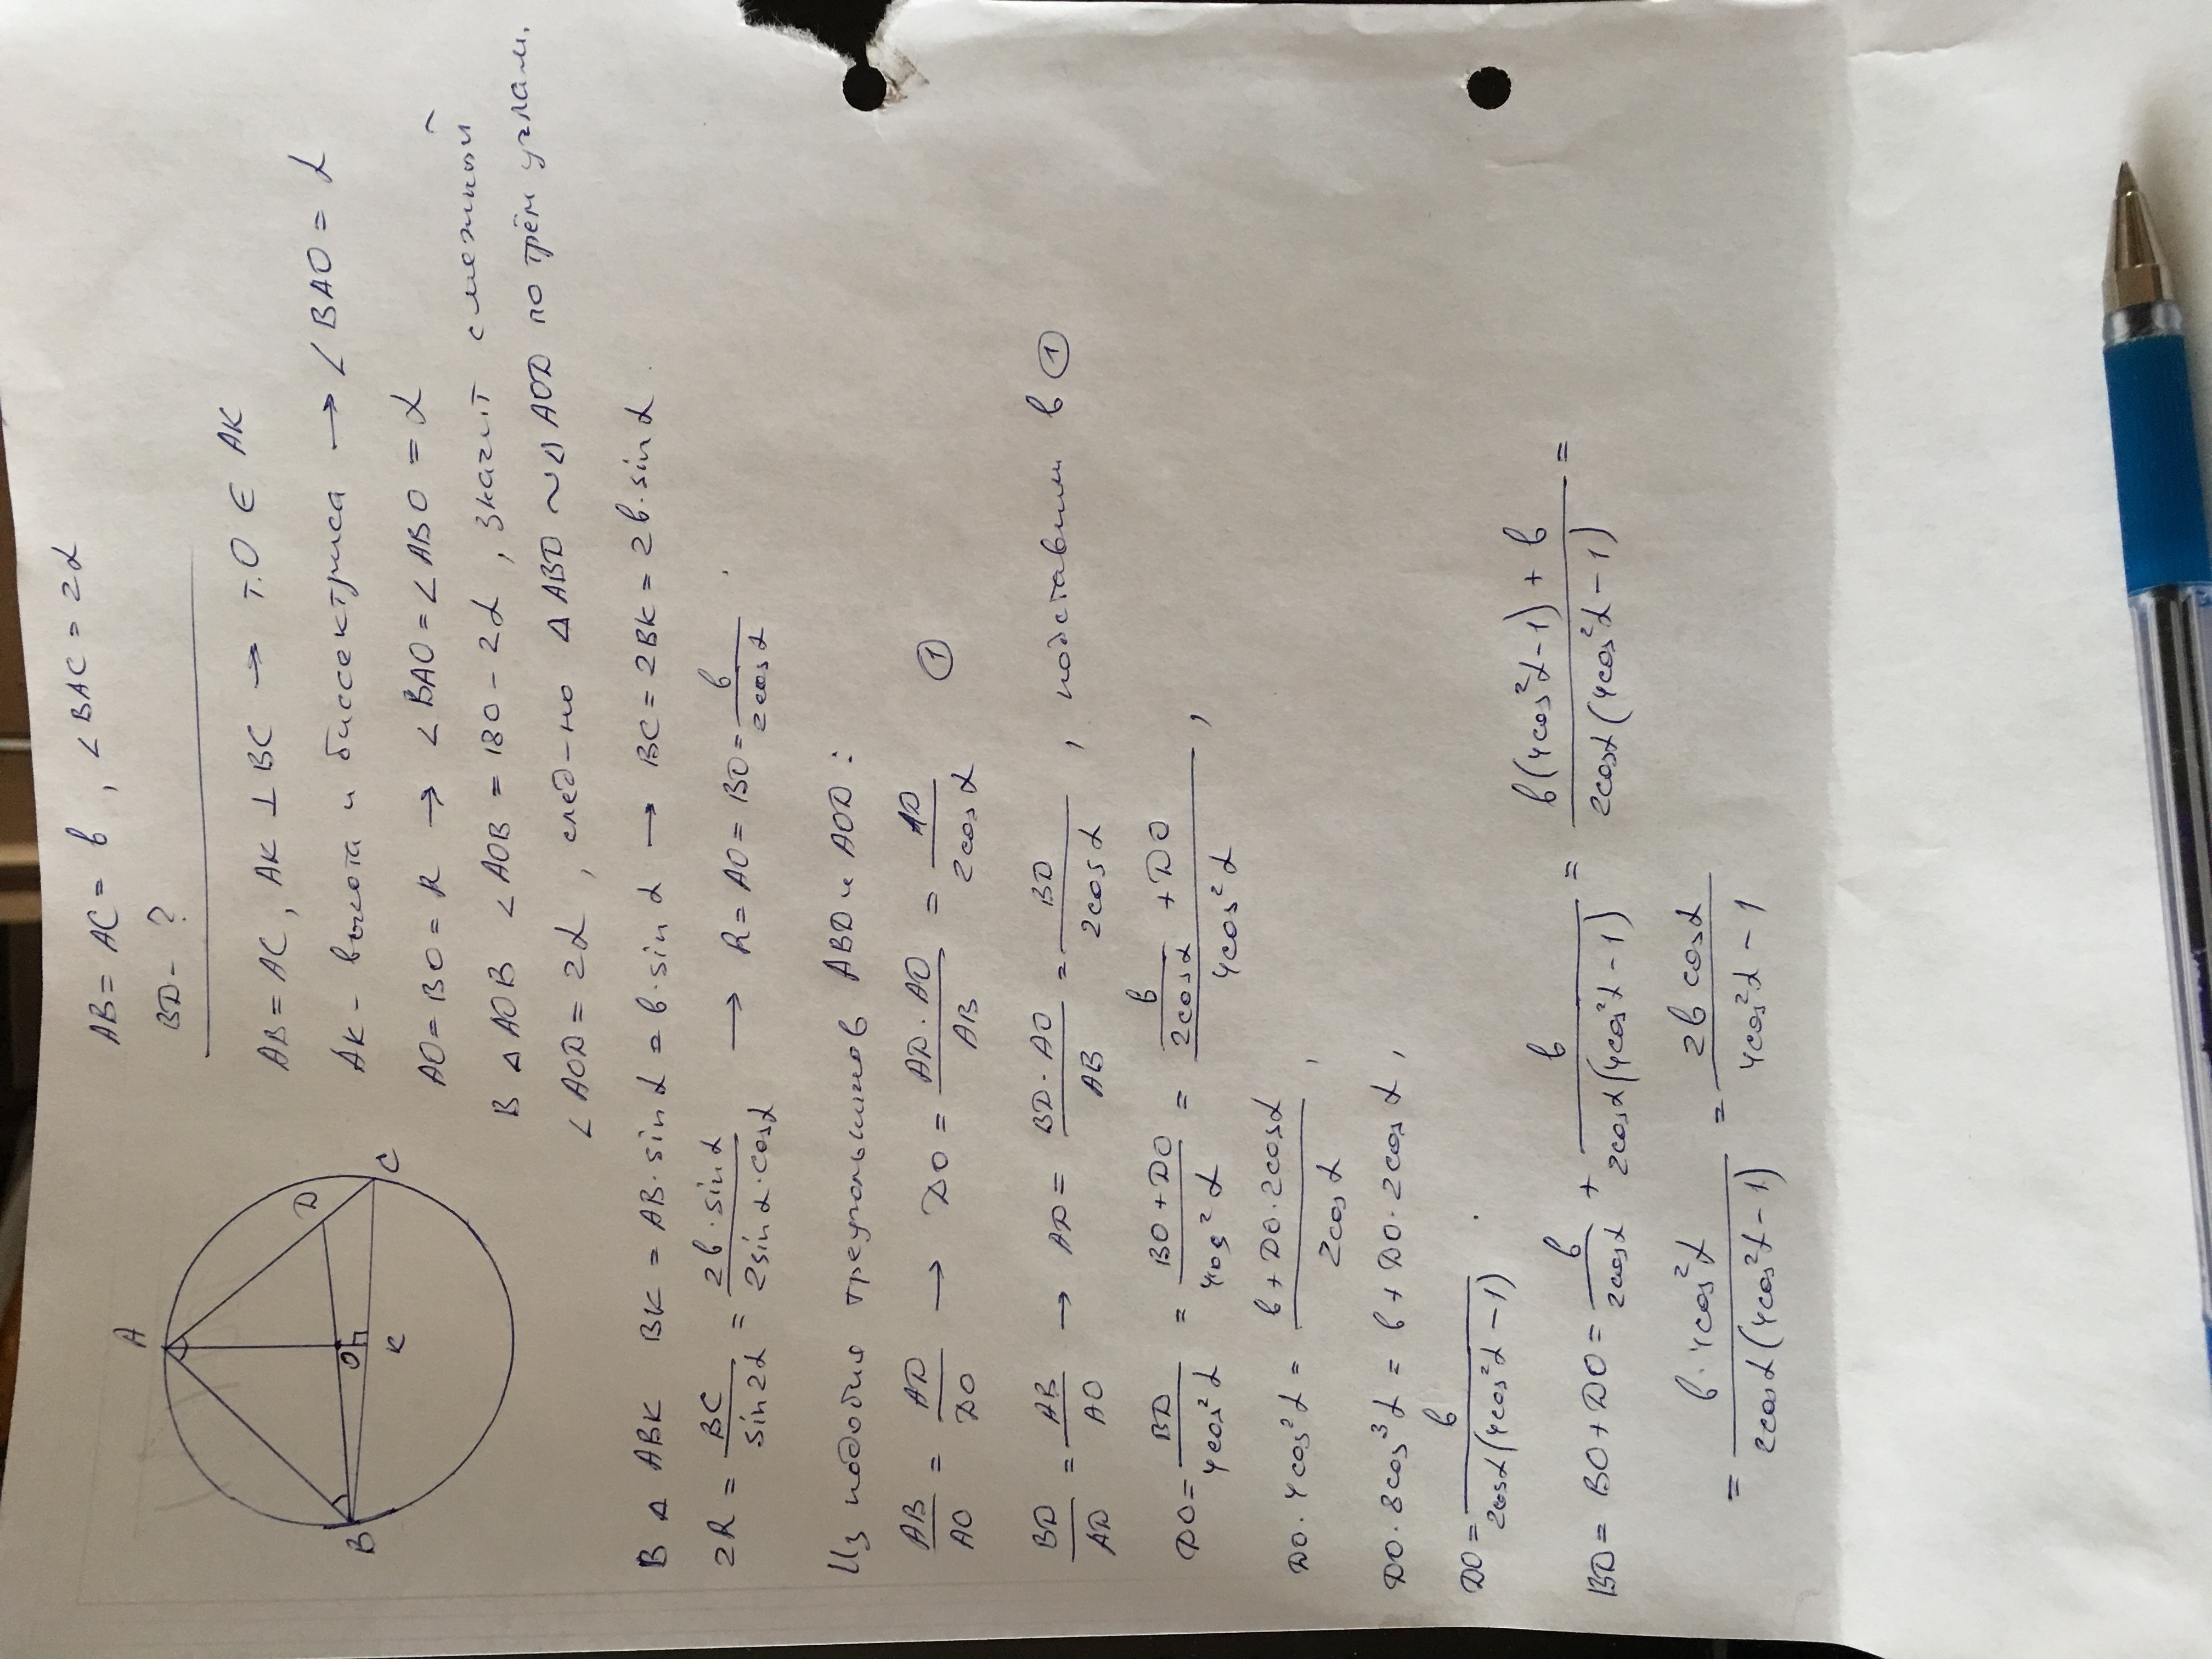 AB = AC = b, ∠BAC = 2α
BD - ?
AB = AC, AK ⊥ BC → т.O ∈ AK
AK - высота и биссектриса → ∠BAO = α
AO = BO = R → ∠BAO = ∠ABO = α
В △AOB ∠AOB = 180 - 2α, значит смежный
∠AOD = 2α, след-но △ABD ~ △AOD по трём углам.
A
B
C
D
O
K
В △ABK BK = AB·sin α = b·sin α → BC = 2BK = 2b·sin α
2R = BC/sin2α = 2b·sinα/2sinα·cosα → R = AO = BO = b/2cosα.
Из подобия треугольников ABD и AOD:
AB/AO = AD/DO → DO = AD·AO/AB = AD/2cosα ①
BD/AD = AB/AO → AD = BD·AO/AB = BD/2cosα, подставим в ①
DO = BD/4cos²α = BO+DO/4cos²α = b/2cosα + DO/4cos²α,
DO·4cos²α = b+DO·2cosα/2cosα,
DO·8cos³α = b + DO·2cosα,
DO = b/2cosα(4cos²α-1).
BD = BO + DO = b/2cosα + b/2cosα(4cos²α-1) = b(4cos²α-1)+b/2cosα(4cos²α-1) =
= b·4cos²α/2cosα(4cos²α-1) = 2b cosα/4cos²α-1